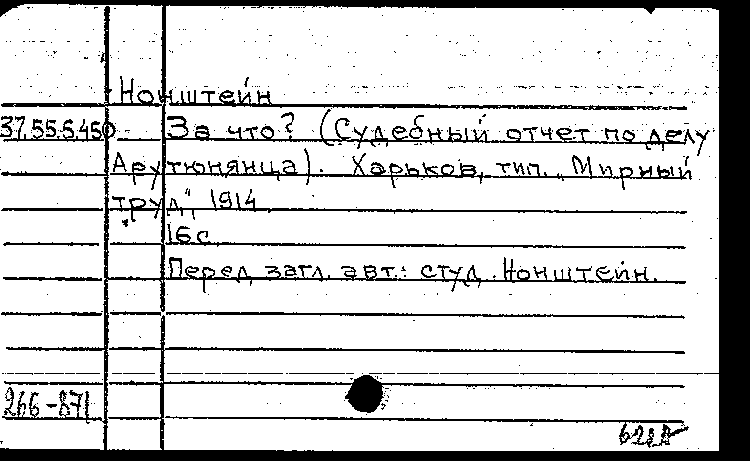 Нонштейн
37.55.5.450 За что? (Судебный отчет по делу
Арутюнянца). Харьков, тип. „Мирный
труд", 1914.
16 с.
Перед загл. авт.: студ. Нонштейн.
266-871